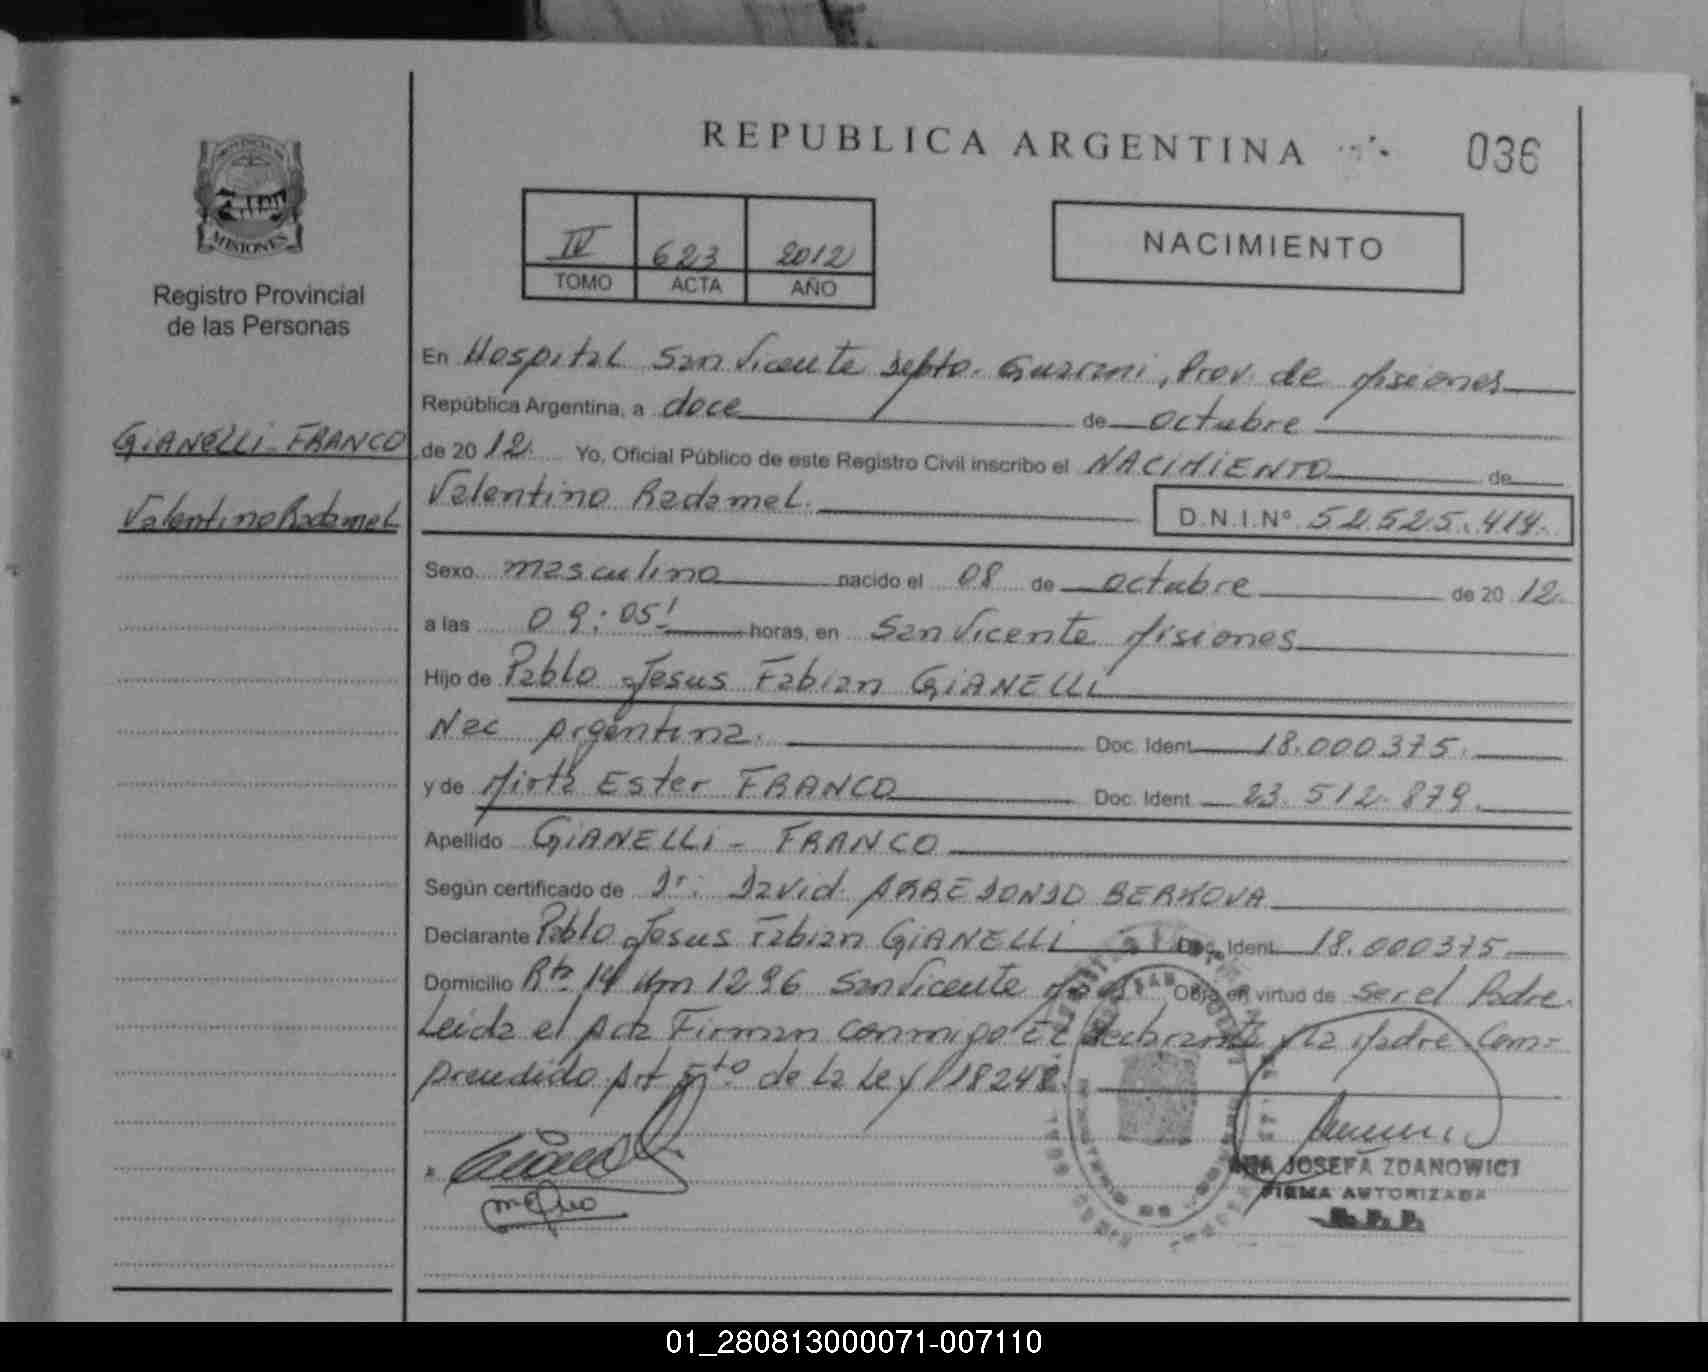 REPUBLICA ARGENTINA
036
PROVINCIA DE
MISIONES
Registro Provincial
de las Personas
IV 623 2012
TOMO ACTA AÑO
NACIMIENTO
En Hospital San Vicente Depto. Guarani, Prov. de Misiones
República Argentina, a doce de octubre
GIANELLI - FRANCO
de 20 12. Yo, Oficial Público de este Registro Civil inscribo el NACIMIENTO de
Valentino Radamel
Valentino Radamel.
D.N.I.Nº 52.525.414.
Sexo masculino nacido el 08 de octubre de 20 12.
a las 09:05' horas, en San Vicente Misiones
Hijo de Pablo Jesus Fabian GIANELLI
Nac Argentina. Doc. Ident. 18.000375.
y de Mirta Ester FRANCO Doc. Ident. 23.512.879.
Apellido GIANELLI - FRANCO
Según certificado de Dr: David ARREDONDO BERKOVA
Declarante Pablo Jesus Fabian GIANELLI Doc. Ident. 18.000375
Domicilio Rta 14 Km 1296 San Vicente Obra en virtud de ser el Padre.
Leida el Acta Firman conmigo El declarante y la Madre. Com=
prendido Art 5to de la Ley 18248.
ANA JOSEFA ZDANOWICZ
FIRMA AUTORIZADA
R. P. P.
01_280813000071-007110